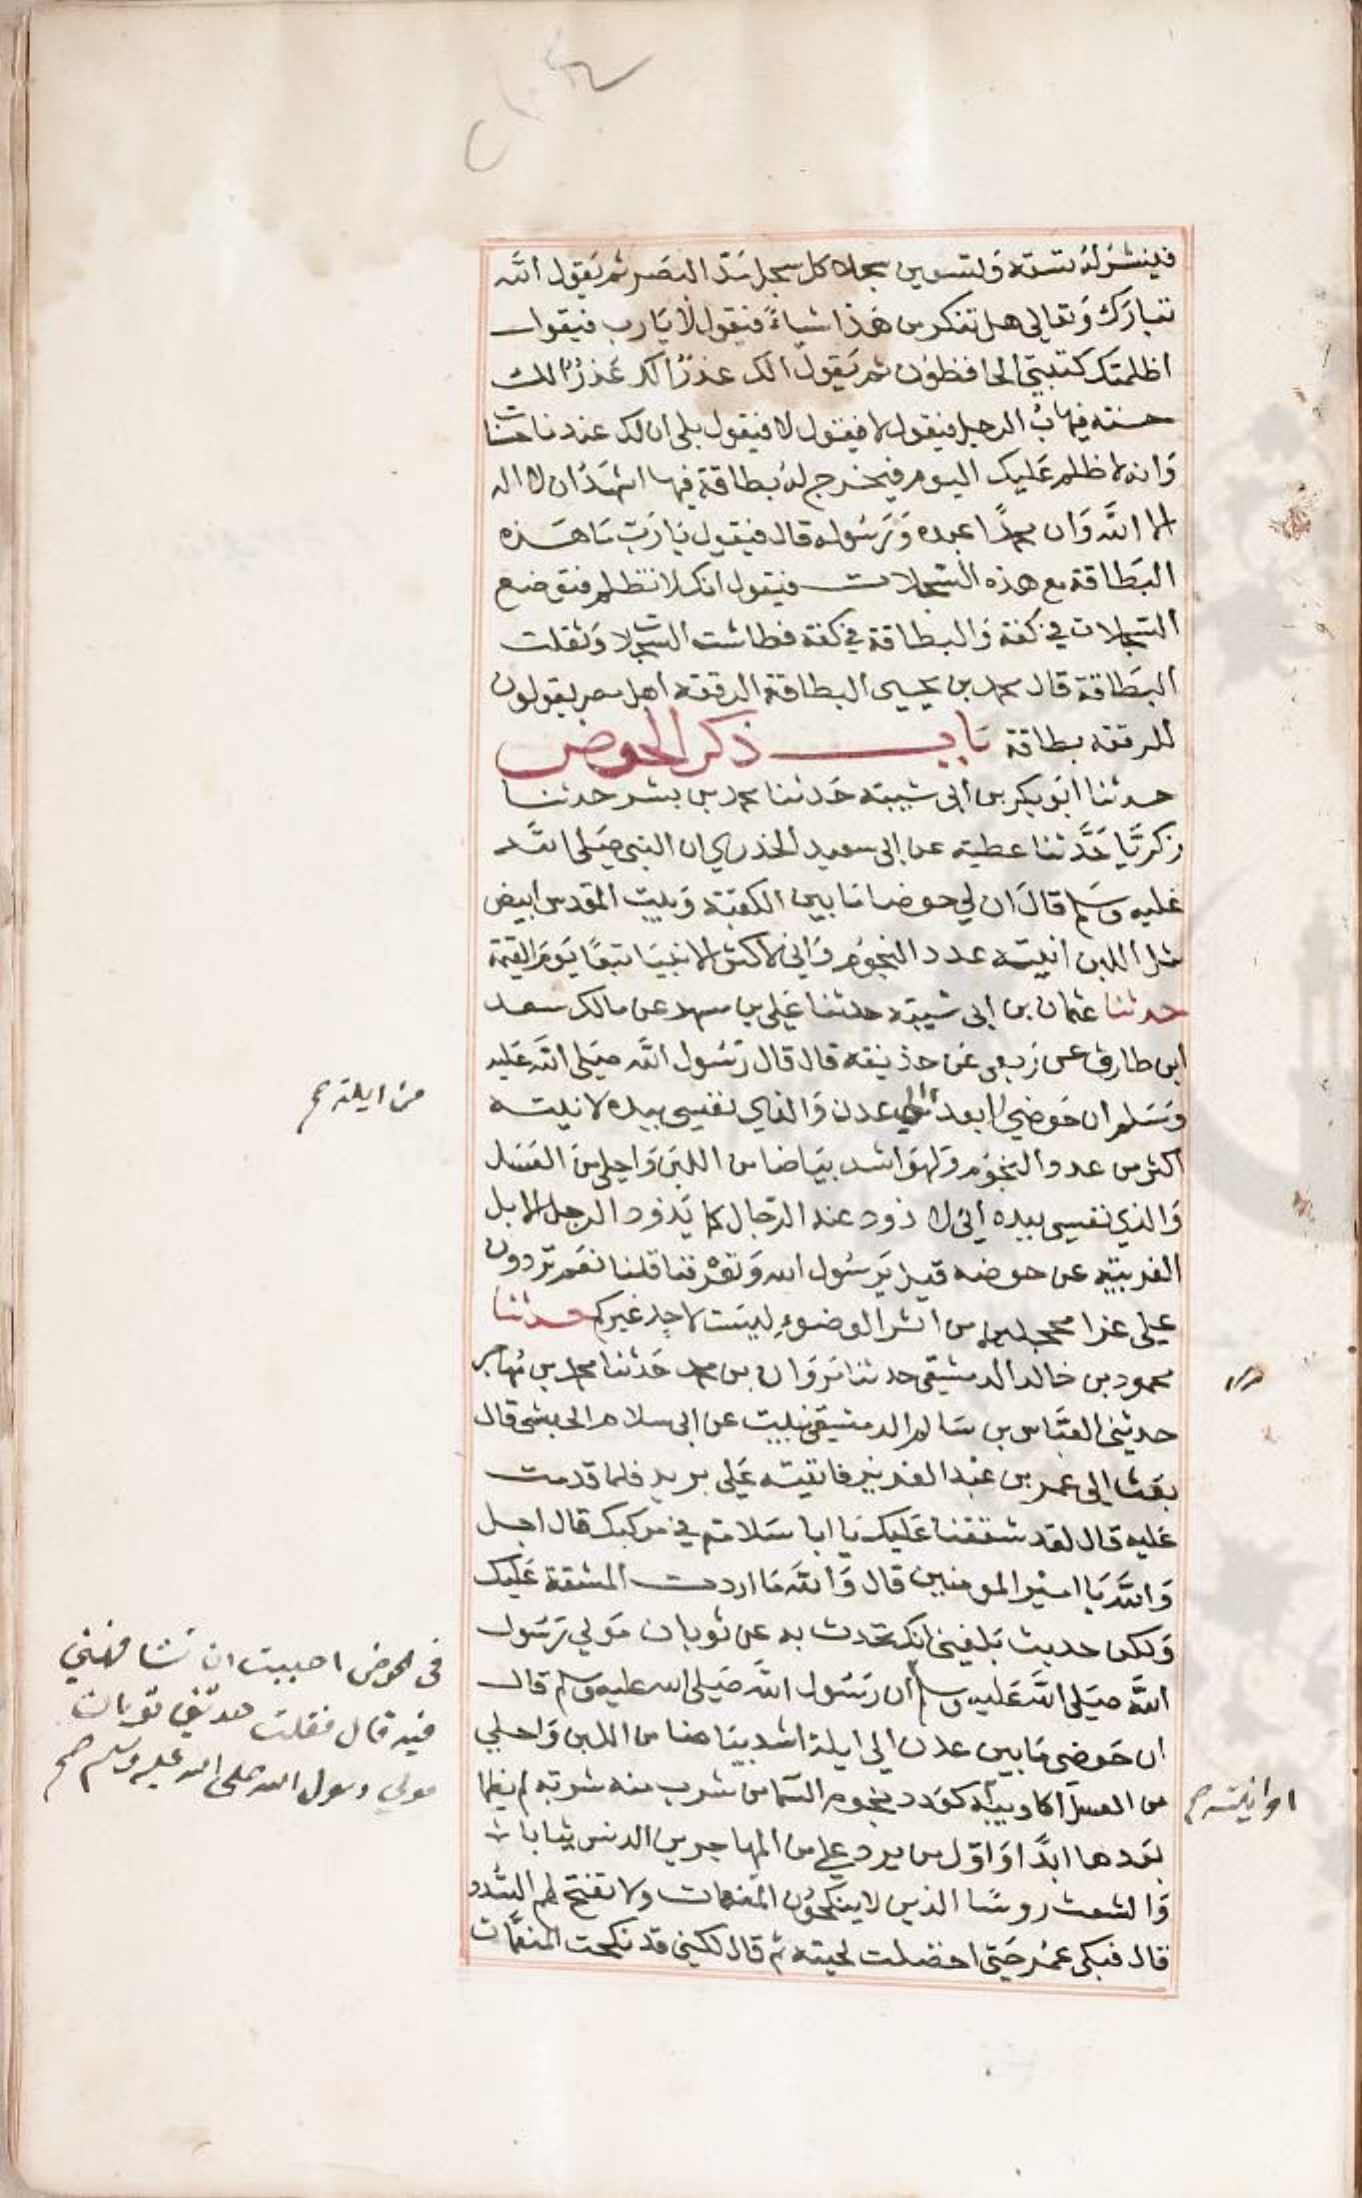 فينشر له تسته وتسعين سجلا كل سجل مد البصر ثم يقول الله
تبارك وتعالى هل تنكر من هذا شياءً فيقول لا يا رب فيقول
اظلمتك كتبتي الحافظون ثم يقول الك عذر الك عذر الك
حسنه فيهاب الرجل فيقول لا فيقول لا فيقول بلى ان لك عندنا حسنات
وانه لا ظلم عليك اليوم فيخرج له بطاقة فيها اشهد ان لا اله
الا الله وان محمدا عبده ورسوله قال فيقول يا رب ما هذه
البطاقة مع هذه السجلات فيقول انك لا تظلم فتوضع
السجلات في كفة والبطاقة في كفة فطاشت السجلات وثقلت
البطاقة قال محمد بن يحيى البطاقة الرقعه اهل مصر يقولون
للرقعه بطاقة باب ذكر الحوض
حدثنا ابو بكر بن ابى شيبه حدثنا محمد بن بشر حدثنا
زكريا حدثنا عطيه عن ابى سعيد الخدري ان النبي صلى الله
عليه وسلم قال ان لي حوضا ما بين الكعبة وبيت المقدس ابيض
مثل اللبن انيته عدد النجوم واني لاكثر الانبيا تبعا يوم القيمة
حدثنا عثمان بن ابى شيبه حدثنا علي بن مسهر عن مالك سعد
ابن طارق عن ربعي عن حذيفه قال قال رسول الله صلى الله عليه
وسلم ان حوضي لابعد الى عدن والذي نفسي بيده لانيته
من ايلة صح
اكثر من عدد النجوم ولهو اشد بياضا من اللبن واحلى من العسل
والذي نفسي بيده اني لاذود عنه الرجال كما يذود الرجل الابل
الغريبه عن حوضه قيل يرسول الله وتعرفنا قال نعم تردون
علي غرا محجلين من اثر الوضوء ليست لاحد غيركم حدثنا
محمود بن خالد الدمشقى حدثنا مروان بن محمد حدثنا محمد بن مهاجر
حدثني العباس بن سالم الدمشقى نبيت عن ابى سلام الحبشى قال
بعث الى عمر بن عبد العزيز فاتيته على بريد فلما قدمت
عليه قال لقد شققنا عليك يا ابا سلام في مركبك قال اجل
والله يا امير المومنين قال والله ما اردت المشقة عليك
ولكن حديث بلغني انك تحدث به عن ثوبان مولي رسول
الله صلى الله عليه وسلم ان رسول الله صلى الله عليه وسلم قال
فى الحوض احببت ان تشافهني
فيه قال فقلت حدثني ثوبان
مولي رسول الله صلى الله عليه وسلم صح
ان حوضي ما بين عدن الى ايلة اشد بياضا من اللبن واحلي
من العسل اكاويبه كعدد نجوم السما من شرب منه شربه لم يظما
اوانيته
بعدها ابدا واول من يرد علي من المهاجرين الدنس ثيابا
والشعث روسا الذين لا ينكحون المنعمات ولا تفتح لهم السدد
قال فبكى عمر حتى اخضلت لحيته ثم قال لكني قد نكحت المنعمات